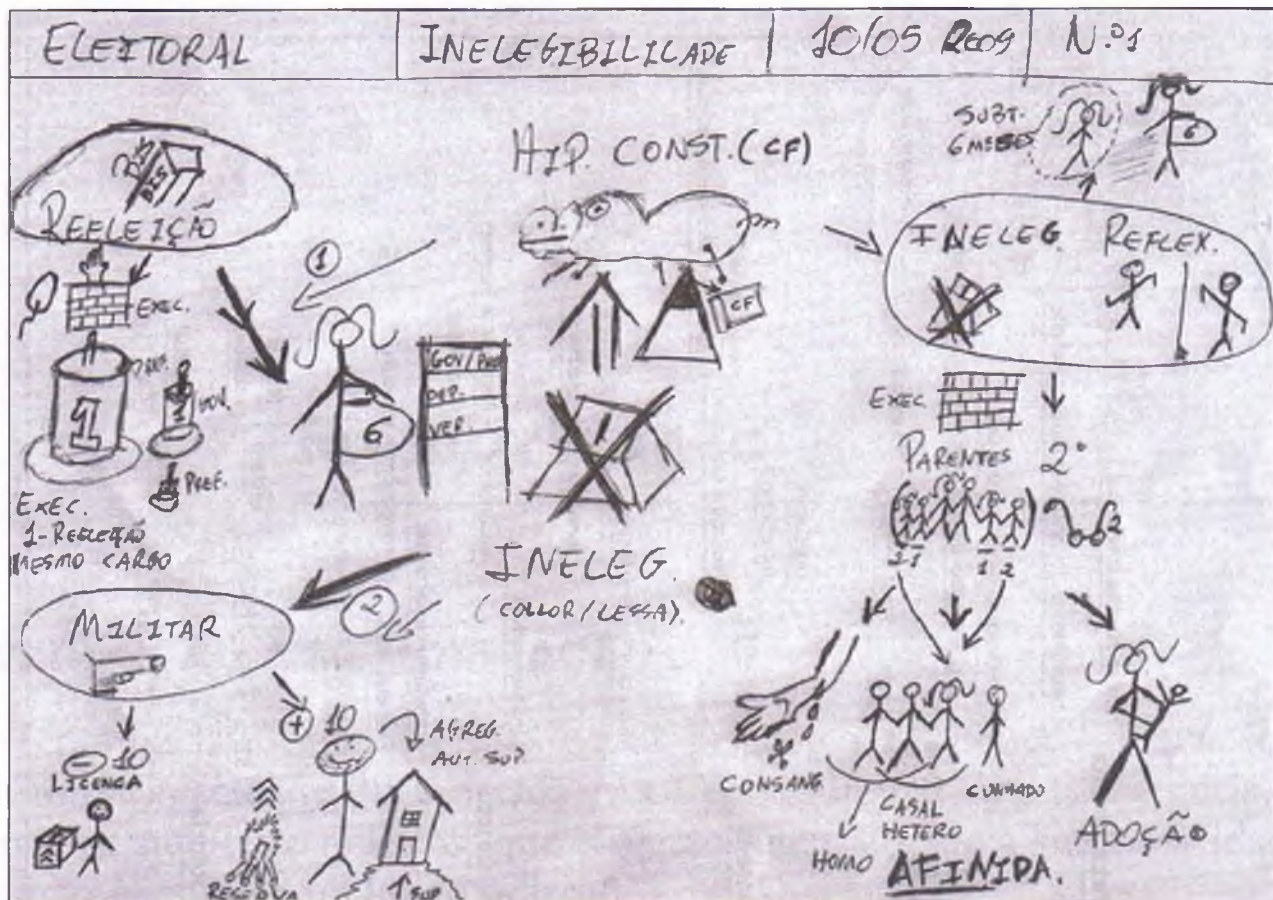 ELEITORAL
INELEGIBILILADE
10/05 2009
N.º 1
HIP. CONST. (CF)
CF
BIS
BIS
REELEIÇÃO
EXEC.
1
1
GOV.
PREF.
EXEC.
1-REELEIÇÃO
MESMO CARGO
1
6
GOV/PRE
DEP.
VER.
1
INELEG.
(COLLOR/LESSA).
2
MILITAR
- 10
LICENCA
+
10
AGREG.
AUT. SUP.
RESERVA
↑ SUP
SUBT.
6
INELEG. REFLEX.
EXEC
PARENTES 2º
2 1
1 2
2
CONSANG
CASAL
HETERO
HOMO
CUNHADO
AFINIDA.
ADOÇÃO